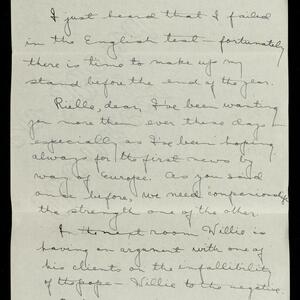 I just heard that I failed
in the English test — fortunately
there is time to make up my
stand before the end of the year.
Rielle, dear, I've been wanting
you more than ever these days —
especially as I've been hoping
always for the first news by
way of Europe. As you said
once before, we need companionship
the strength one of the other.
In the next room Willie is
having an argument with one of
his clients on the infallibility
of the pope — Willie to the negative.